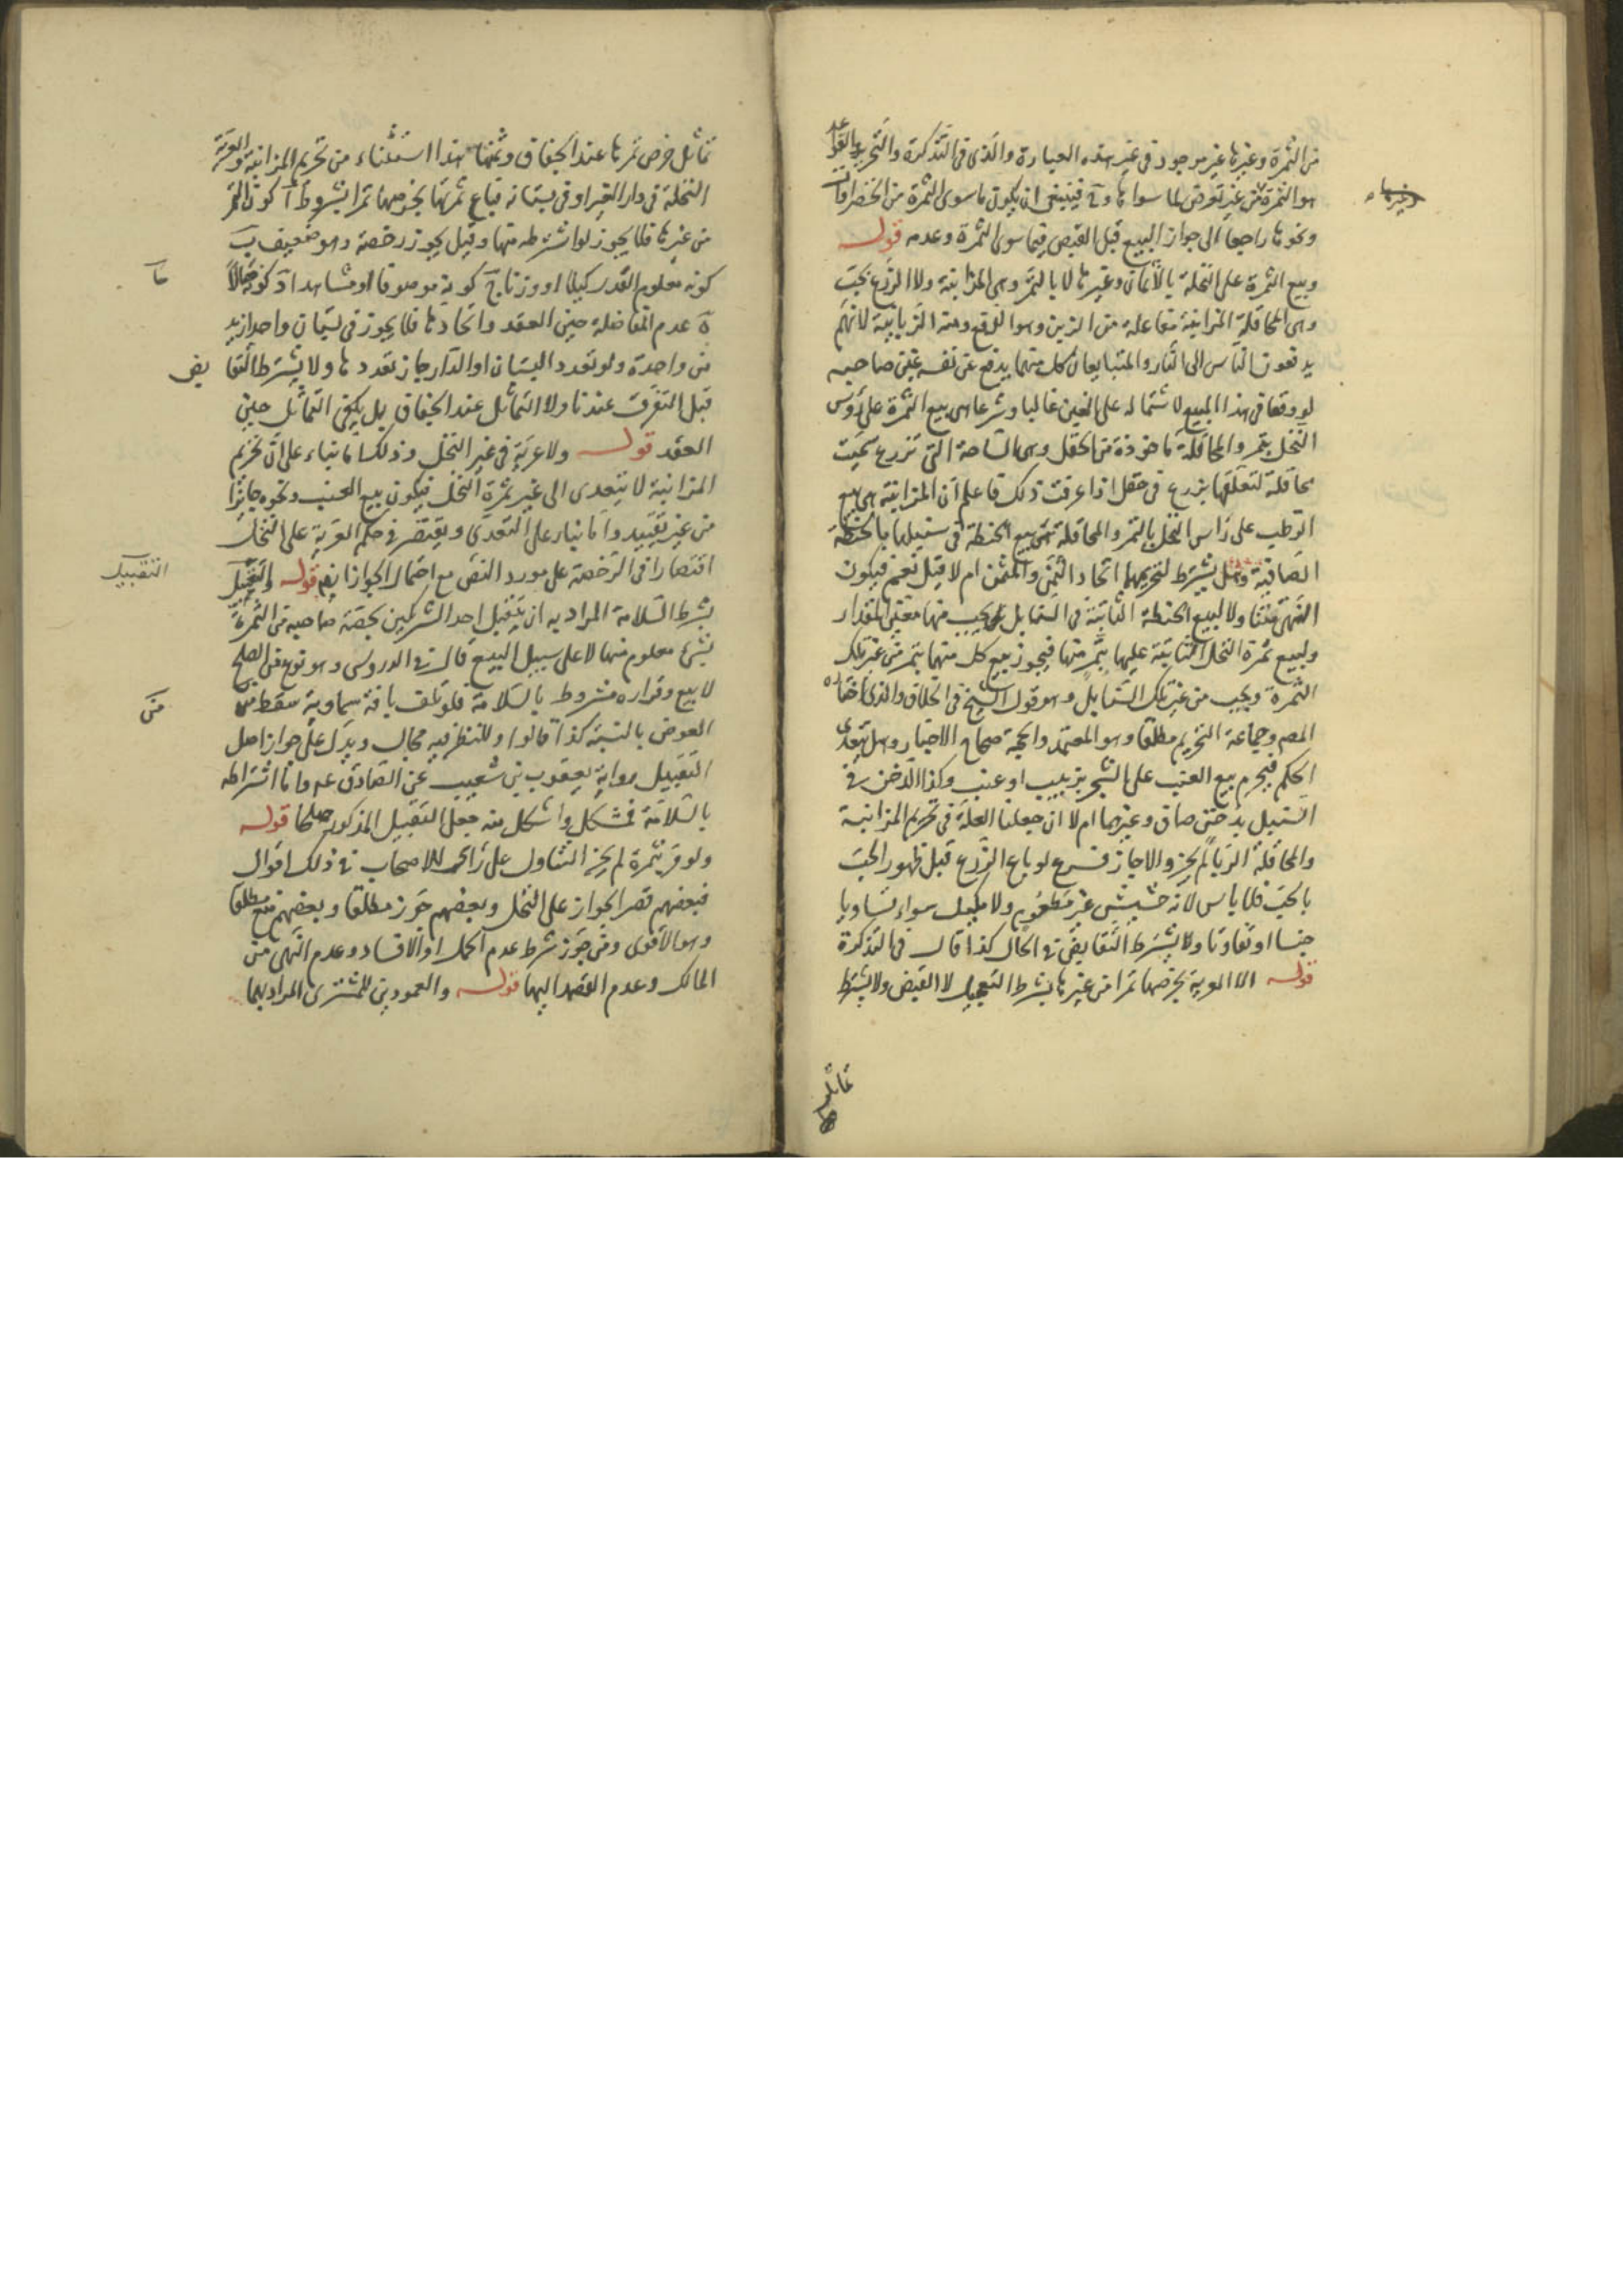 من الثمرة وغيرها غير موجود فى غير هذه العبارة والذى فى التذكرة والتحرير والقواعد
هو الثمرة من غير تعرض لما سواها وح فينبغى ان يكون ما سوى الثمرة من الخضراوات
وغيرها
ونحوها راجعا الى جواز البيع قبل القبض فيما سوى الثمرة وعدمه قوله
وبيع الثمرة على النخلة بالاثمان وغيرها لا بالتمر وهى المزابنة ولا الزرع بحب
وهى المحاقلة المزابنة مفاعلة من الزبن وهو الدفع ومنه الزبانية لانهم
يدفعون الناس الى النار والمتبايعان كل منهما يدفع عن نفسه غبن صاحبه
لو وقعا فى هذا البيع لاشتماله على الغبن غالبا وشرعا هى بيع الثمرة على رؤس
النخل بتمر والمحاقلة ماخوذة من الحقل وهى الساحة التى تزرع سميت
محاقلة لتعلقها بزرع فى حقل اذا عرفت ذلك فاعلم ان المزابنة هى بيع
الرطب على راس النخل بالتمر والمحاقلة هى بيع الحنطة فى سنبلها بالحنطة
الصافية وهل يشترط لتحريمهما اتحاد الثمن والمثمن ام لا قيل نعم فيكون
النهى متناولا لبيع الحنطة الثابتة فى السنابل بحب منها معين المقدار
ولبيع ثمرة النخل الثابتة عليها بتمر منها فيجوز بيع كل منهما بتمر من غير تلك
الثمرة وبحب من غير تلك السنابل وهو قول الشيخ فى الخلاف والذى اختاره
المصم وجماعة التحريم مطلقا وهو المعتمد والحجة صحاح الاخبار وهل يتعدى
الحكم فيحرم بيع العنب على الشجر بزبيب او عنب وكذا الدخن فى
السنبل بدخن صاف وغيرهما ام لا ان جعلنا العلة فى تحريم المزابنة
والمحاقلة الربا لم يجز والا جاز فرع لو باع الزرع قبل ظهور الحب
بالحب فلا باس لانه حشيش غير مطعوم ولا مكيل سواء تساويا
جنسا او تفاوتا ولا يشترط التقابض فى الحال كذا قال فى التذكرة
قوله الا العرية بخرصها تمرا من غيرها بشرط التعجيل لا القبض ولا يشترط
تماثل
تماثل خرص ثمرها عند الجفاف وثمنها هذا استثناء من تحريم المزابنة والعرية
النخلة فى دار الغير او فى بستانه فيباع ثمرتها بخرصها تمرا بشروط آ كون التمر
من غيرها فلا يجوز لو اشترطه منها وقيل يجوز رخصة وهو ضعيف ب
كونه معلوم القدر كيلا او وزنا ج كونه موصوفا او مشاهدا د كونه حالا
ه عدم المفاضلة حين العقد و اتحادها فلا يجوز فى بستان واحد ازيد
من واحدة ولو تعدد البستان او الدار جاز تعددها ولا يشترط التقابض
قبل التفرق عندنا ولا التماثل عند الجفاف بل يكفى التماثل حين
العقد قوله ولا عرية فى غير النخل وذلك اما بناء على ان تحريم
المزابنة لا يتعدى الى غير ثمرة النخل فيكون بيع العنب ونحوه جايزا
من غير تقييد واما بناء على التعدى ويقتصر فى حكم العرية على النخل
اقتصارا فى الرخصة على مورد النص مع احتمال الجواز ايضا قوله والتقبيل
التقبيل
بشرط السلامة المراد به ان يتقبل احد الشريكين بحصة صاحبه من الثمرة
بشئ معلوم منها لا على سبيل البيع قال فى الدروس وهو نوع من الصلح
لا بيع وقراره مشروط بالسلامة فلو تلف بافة سماوية سقط من
العوض بالنسبة كذا قالوا وللنظر فيه مجال ويدل على جواز اصل
التقبيل رواية يعقوب بن شعيب عن الصادق عم واما اشتراطه
بالسلامة فمشكل واشكل منه جعل التقبيل المذكور صلحا قوله
ولو مر بثمرة لم يجز التناول على راى للاصحاب فى ذلك اقوال
فبعضهم قصر الجواز على النخل وبعضهم جوز مطلقا وبعضهم منع مطلقا
وهو الاقوى ومن جوز شرط عدم الحمل او الافساد وعدم النهى من
المالك وعدم القصد اليها قوله والعمودين للمشترى المراد بهما